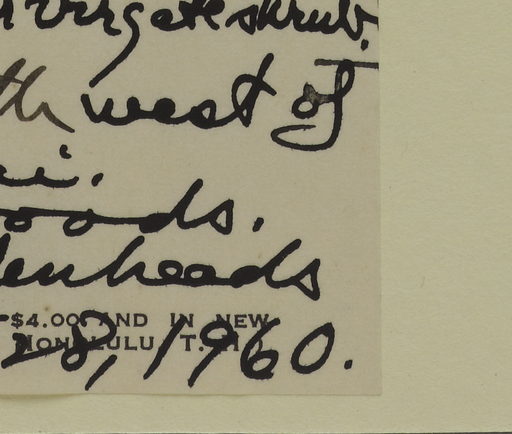 virgate shrub.
th west of
ai.
oods.
enheads
$4.00 AND IN NEW
HONOLULU T.H.
28, 1960.